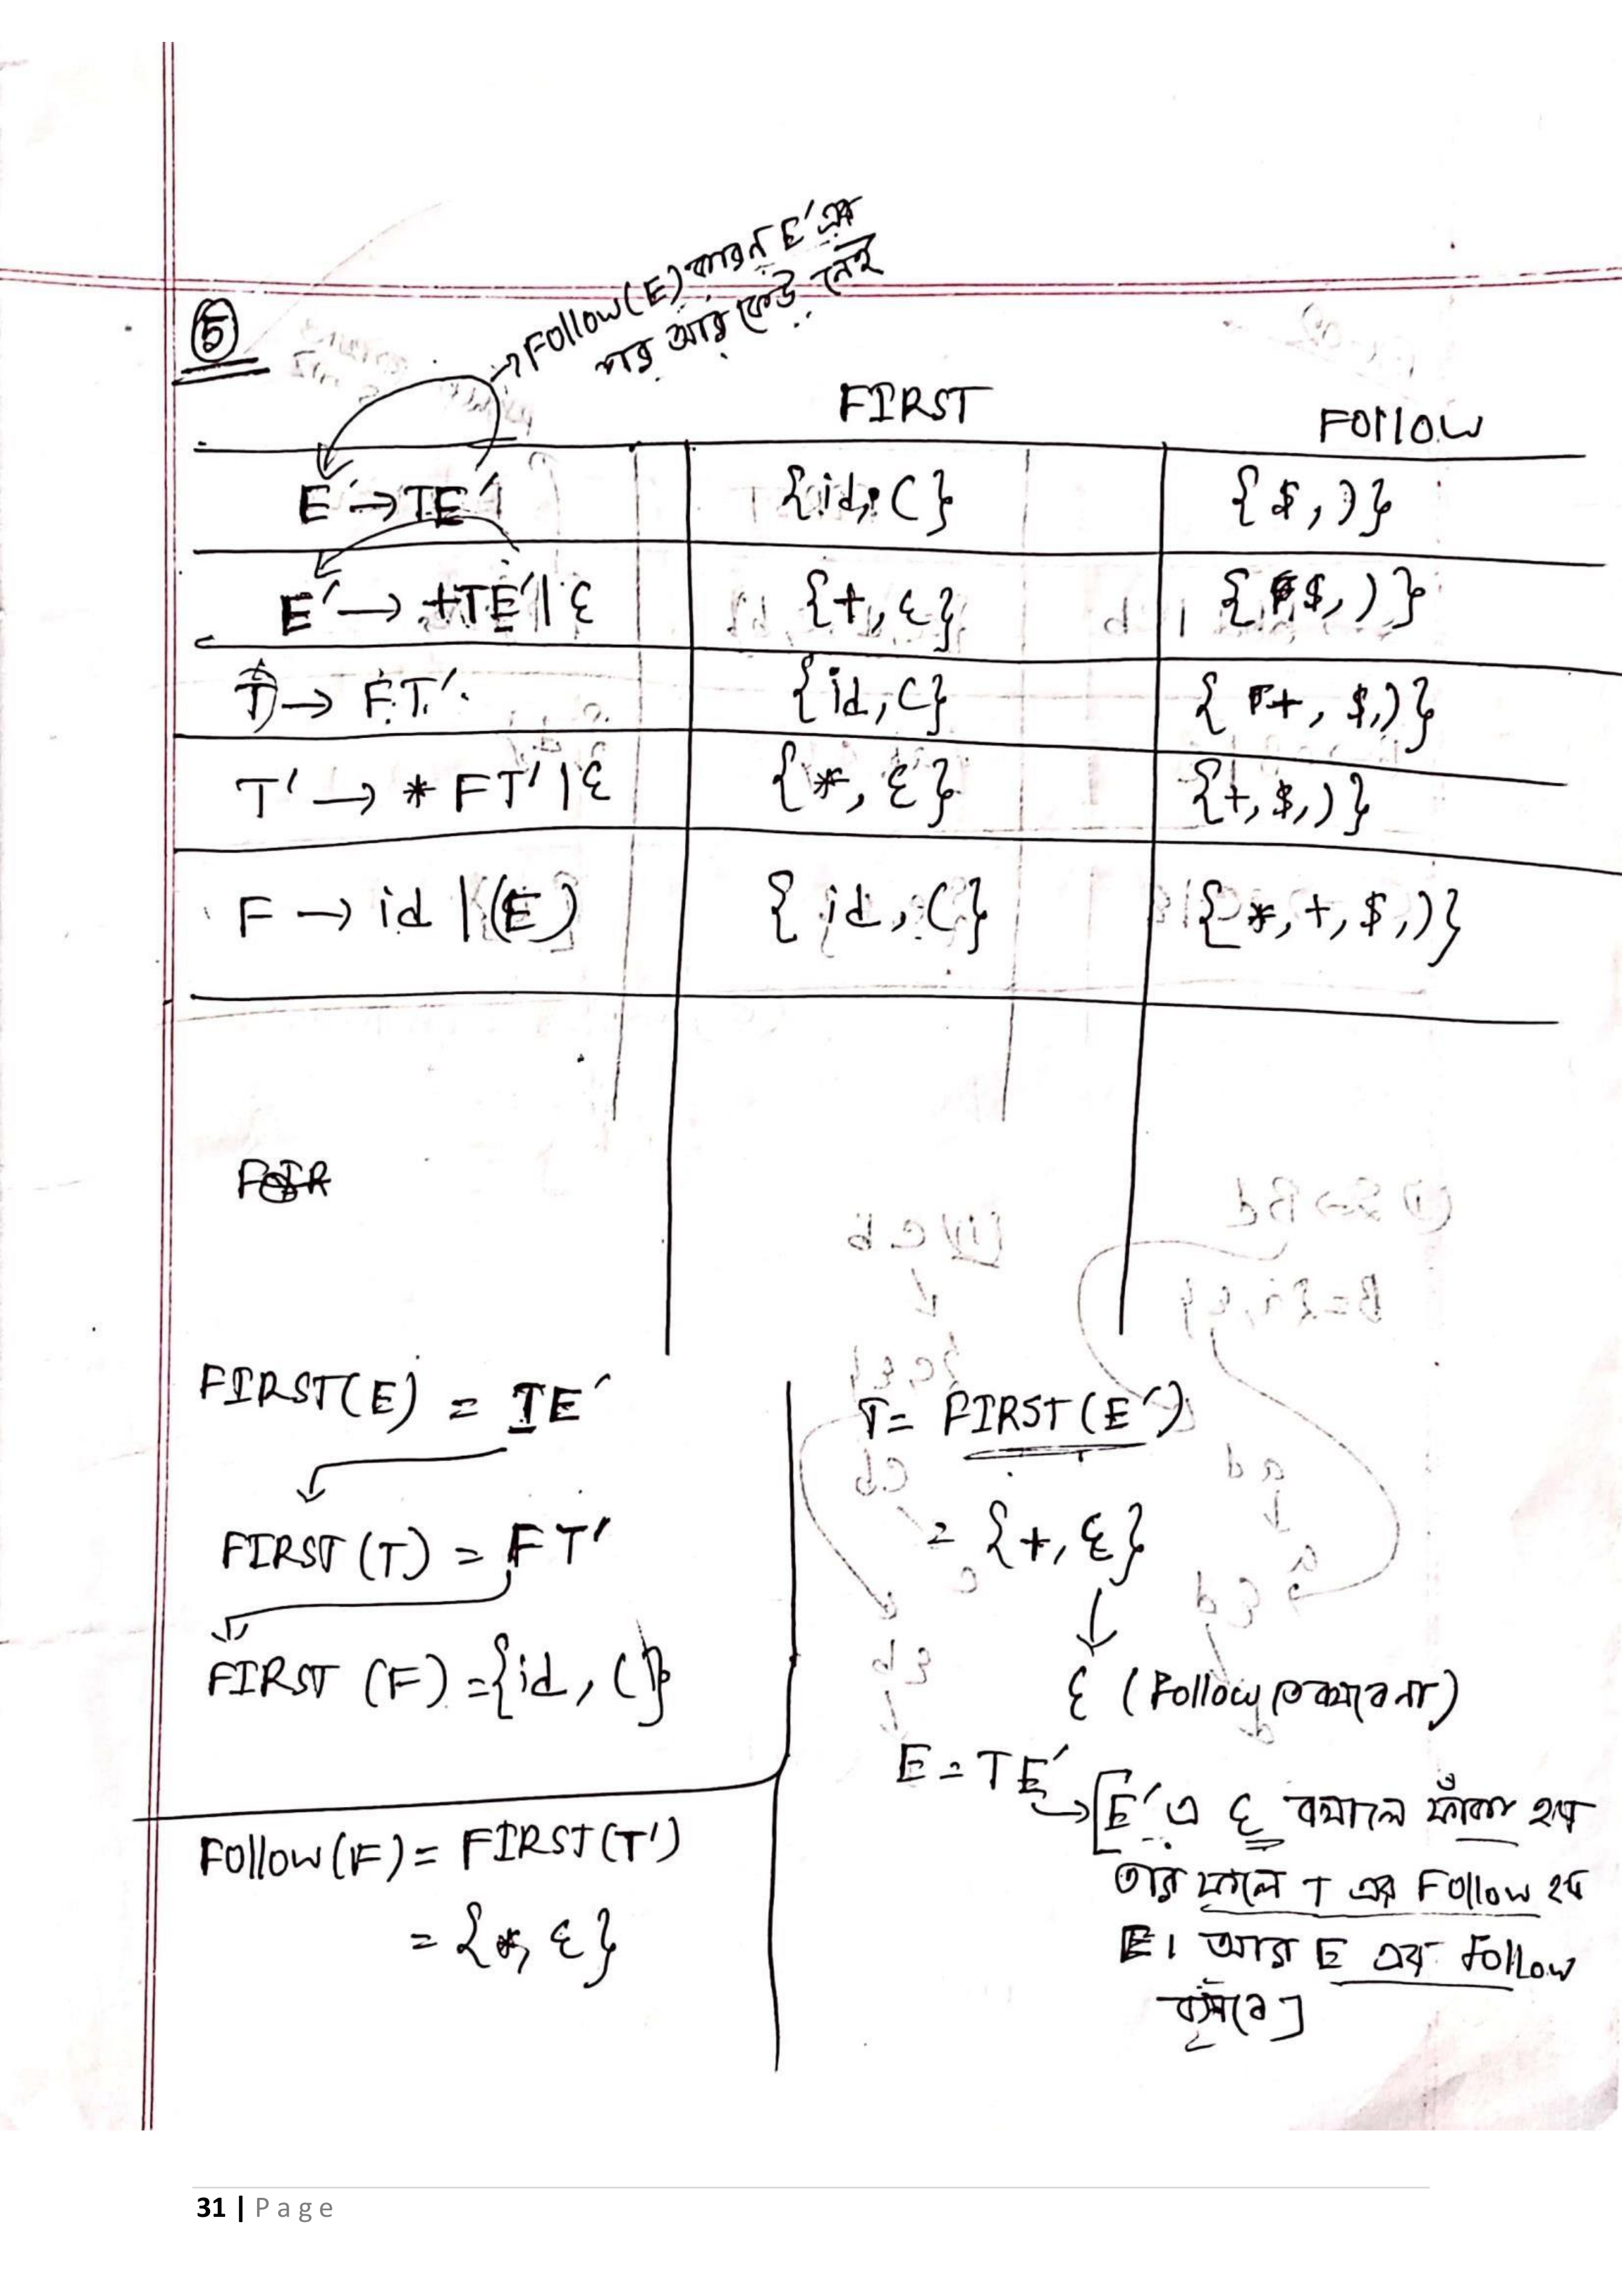 Follow(E) কারন E' এর
পর আর কেউ নেই
5
FIRST
Follow
E → TE' {id, (} {$, )}
E' → +TE' | ε {+, ε} {$, )}
T → FT' {id, (} {+, $, )}
T' → * FT' | ε {*, ε} {+, $, )}
F → id | (E) {id, (} {*, +, $, )}
FIRST(E) = TE'
FIRST(T) = FT'
FIRST (F) = {id, (}
Follow(F) = FIRST(T')
= {*, ε}
T = FIRST(E')
= {+, ε}
ε (Follow তে বসবে না)
E = TE'
[E' এ ε বসালে ফাঁকা হয়
তার ফলে T এর Follow হয়
E। আর E এর Follow
বসবে]
31 | Page